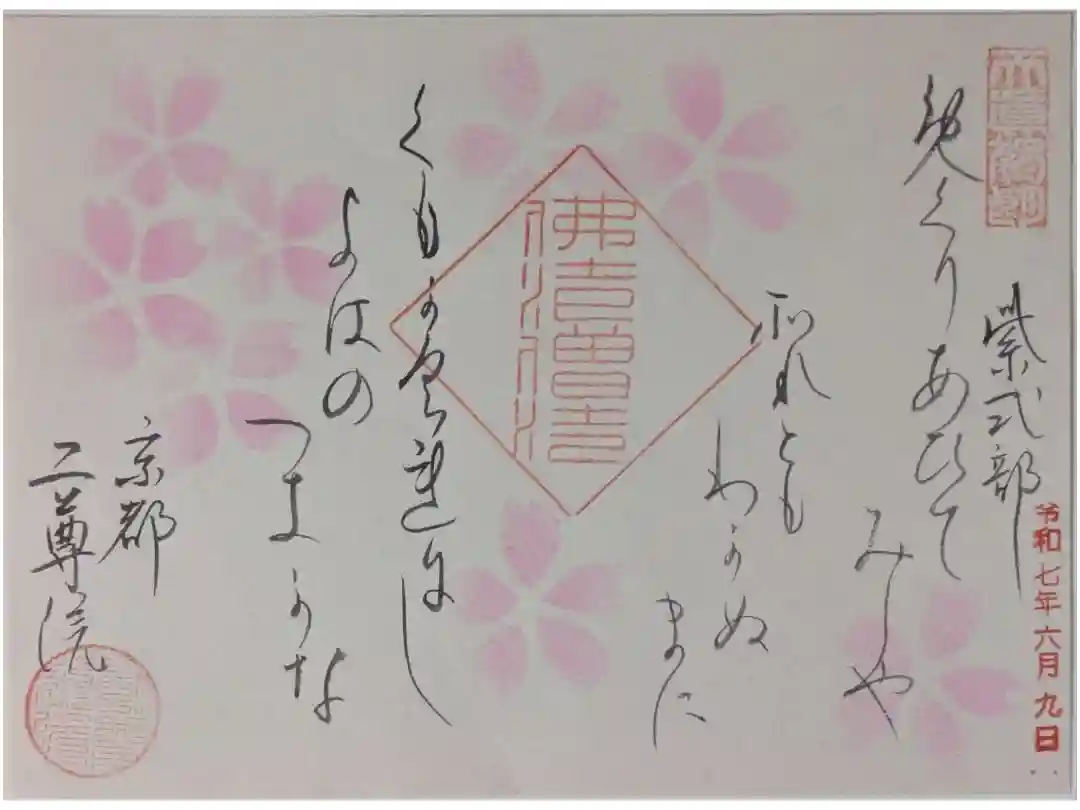 令和七年六月九日
紫式部
めくりあひて
みしや
それとも
わかぬ
まに
くもかくれにし
よはの
つきかな
京都
二尊院